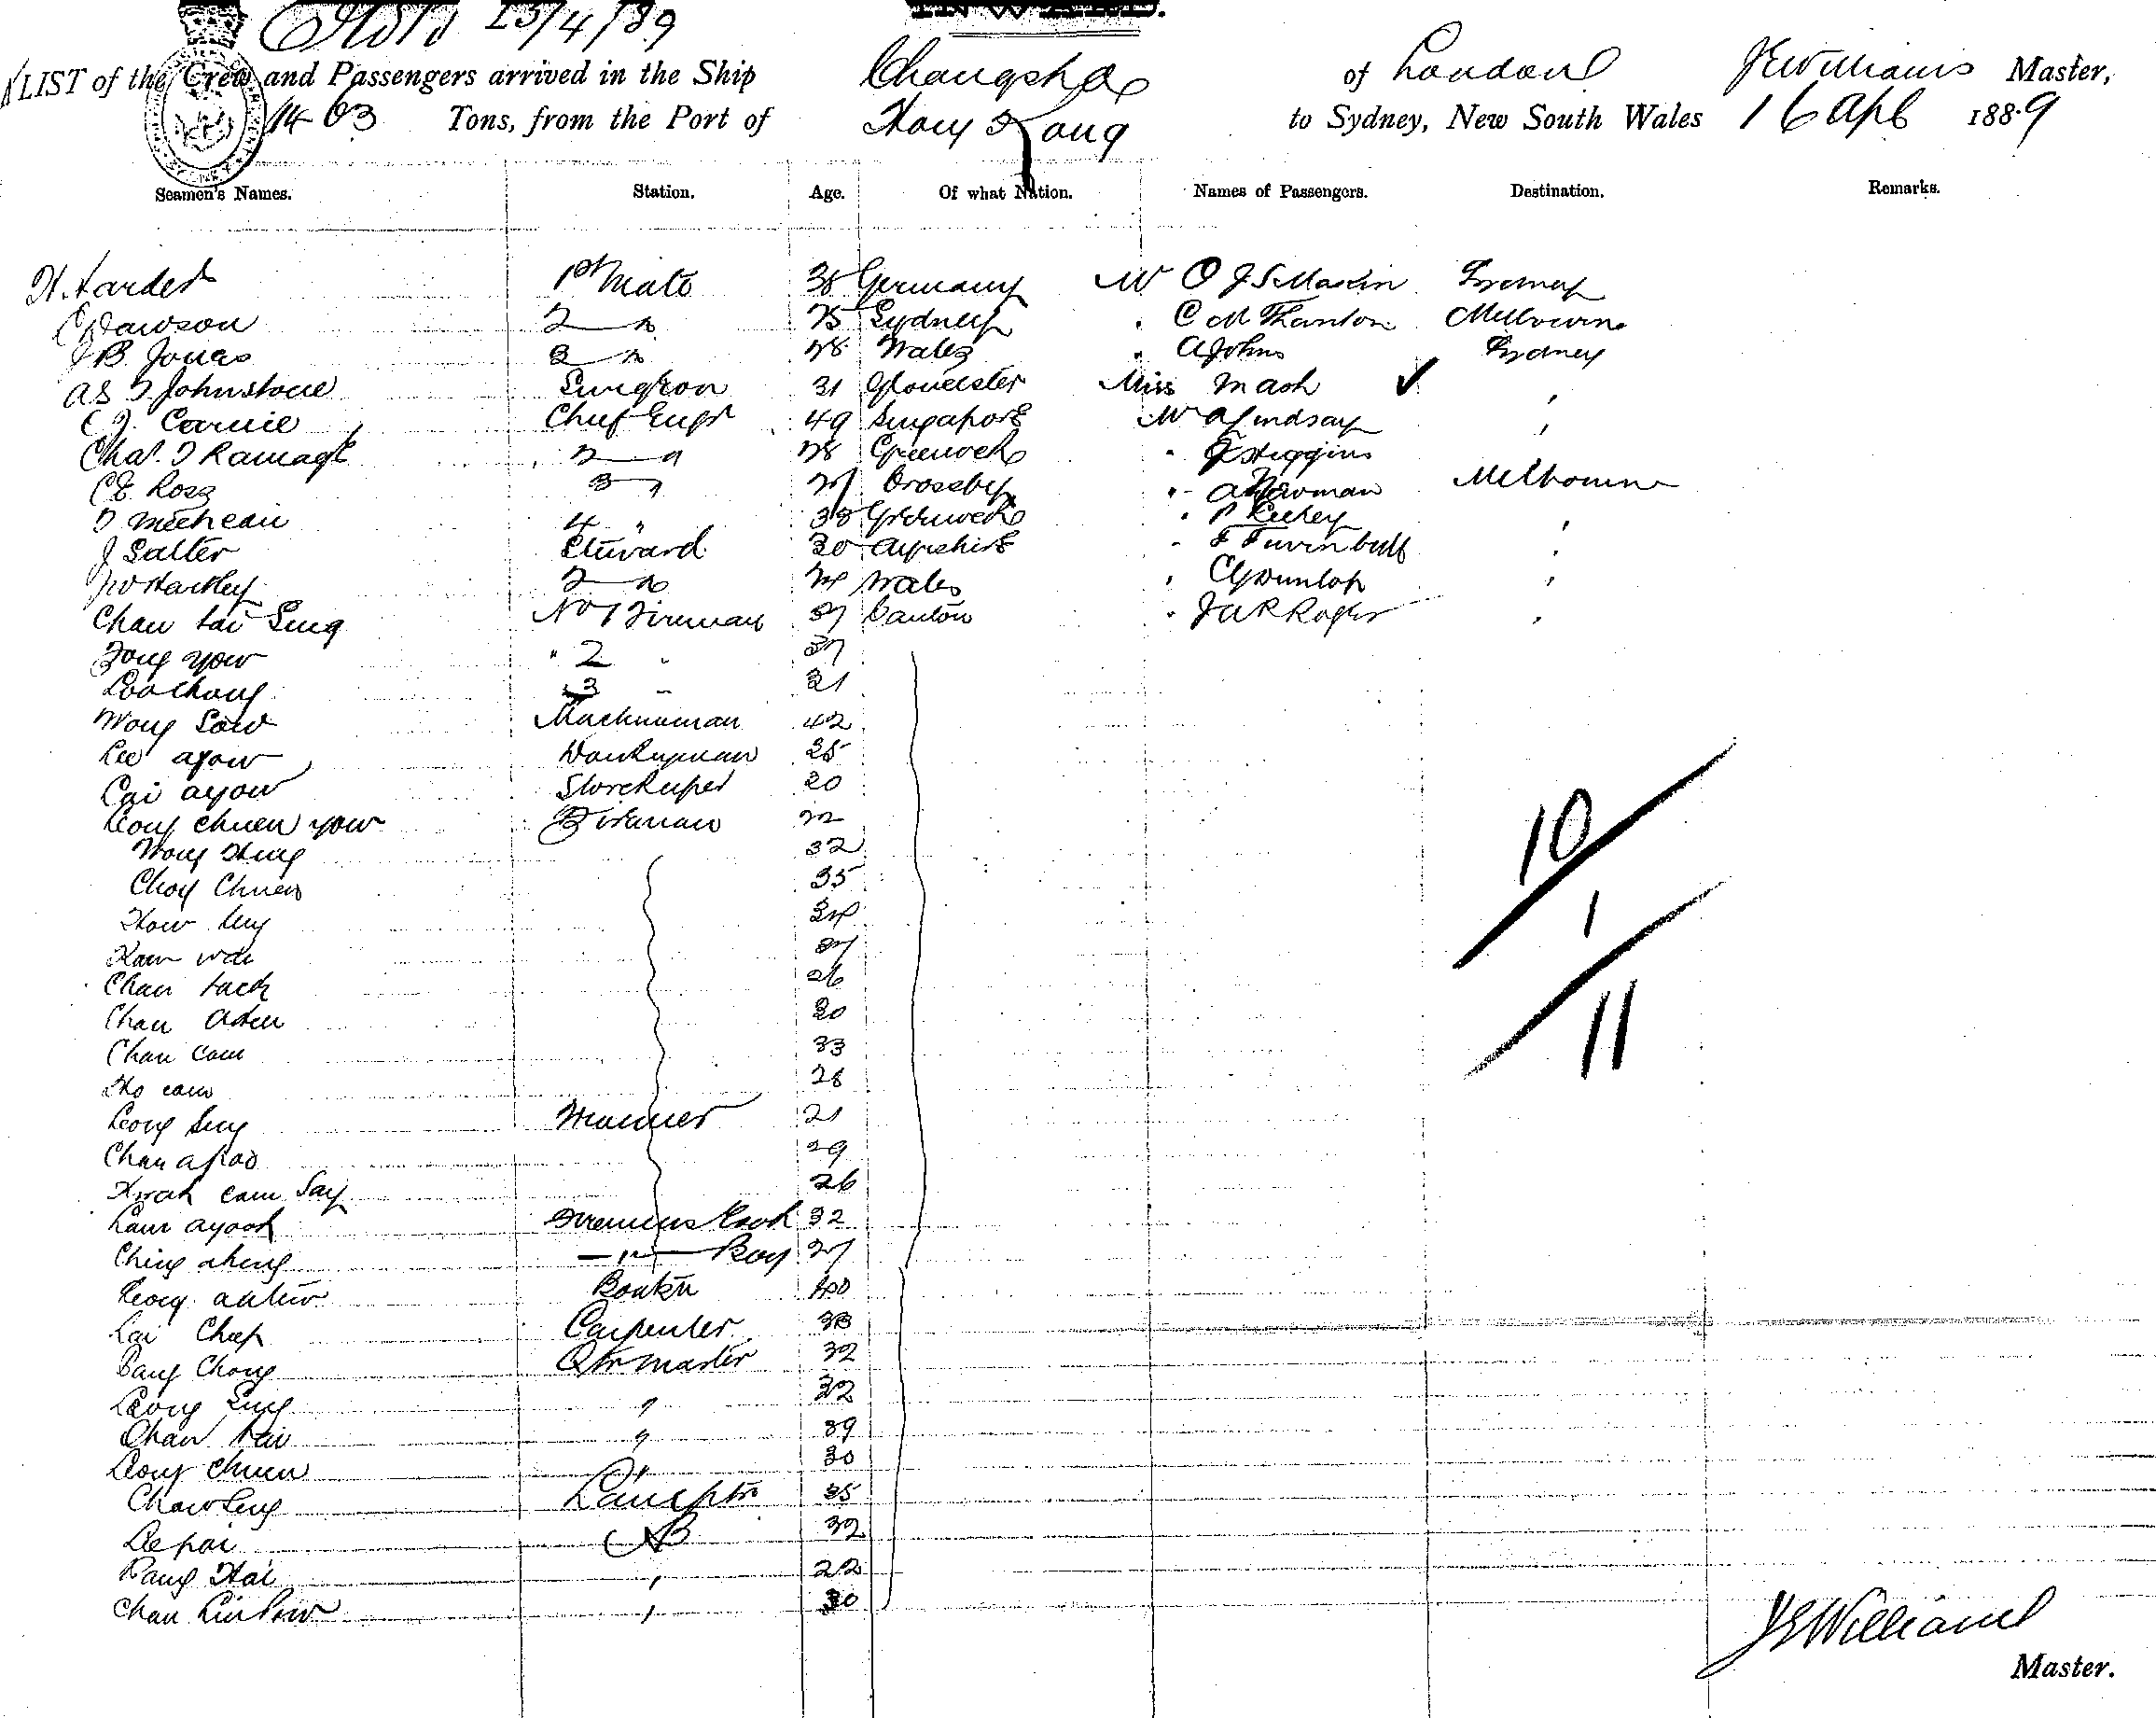 13/4/89
INWARD.
LIST of the Crew and Passengers arrived in the Ship Changsha of London J E Williams Master,
1403 Tons, from the Port of Hong Kong to Sydney, New South Wales 16 Apl 1889
Seamen's Names. Station. Age. Of what Nation. Names of Passengers. Destination. Remarks.
H. Harder 1st Mate 38 Germany Mr O J S Maskin Sydney
C Dawson 2 " 25 Sydney " C M Thornton Melbourne
J B. Jones 3 " 28 Wales " A Johns Sydney
A S D Johnstone Surgeon 31 Gloucester Miss Mash ✓ "
C J. Carnie Chief Engr 49 Singapore Mr A Lindsay "
Chas. D Ramage 2 " 28 Greenock " J Higgins
C E Ross 3 " 27 Crossby " A Newman Melbourne
D Micheau 4 " 38 Greenock " P Keeley "
J Salter Steward 30 Ayrshire " F Turnbull "
W Hackley 2 " 24 Wales " C G Dunlop "
Chan tai Sing No 1 Fireman 37 Canton " J A R Roger "
Fong yow " 2 " 37
Loo Chong " 3 " 21
Wong Sow Machineman 42
Lee ayow Donkeyman 25
Cai ayow Storekeeper 20
Leong chuen yow Fireman 22
Wong Hing 32
Choy Chuen 35
How Ling 34
Kam Wai 37
Chan tack 26
Chan Asten 20
Chan Cam 33
Ho cam 28
Leong Sing Trimmer 21
Chan apoo 29
Kwok cam Say 26
Lam ayook Firemens Cook 32
Ching aheng — " — Boy 27
Leong antein Boatn 40
Lai Chap Carpenter 38
Pang Chong Qtr master 32
Leong Sing " 32
Chan Kew " 39
Leong Chuen " 30
Chow Seng Lamptr 35
Lee pai AB 32
Pang Hai " 22
Chan Lin Pow " 30
10
1
11
J E Williams
Master.